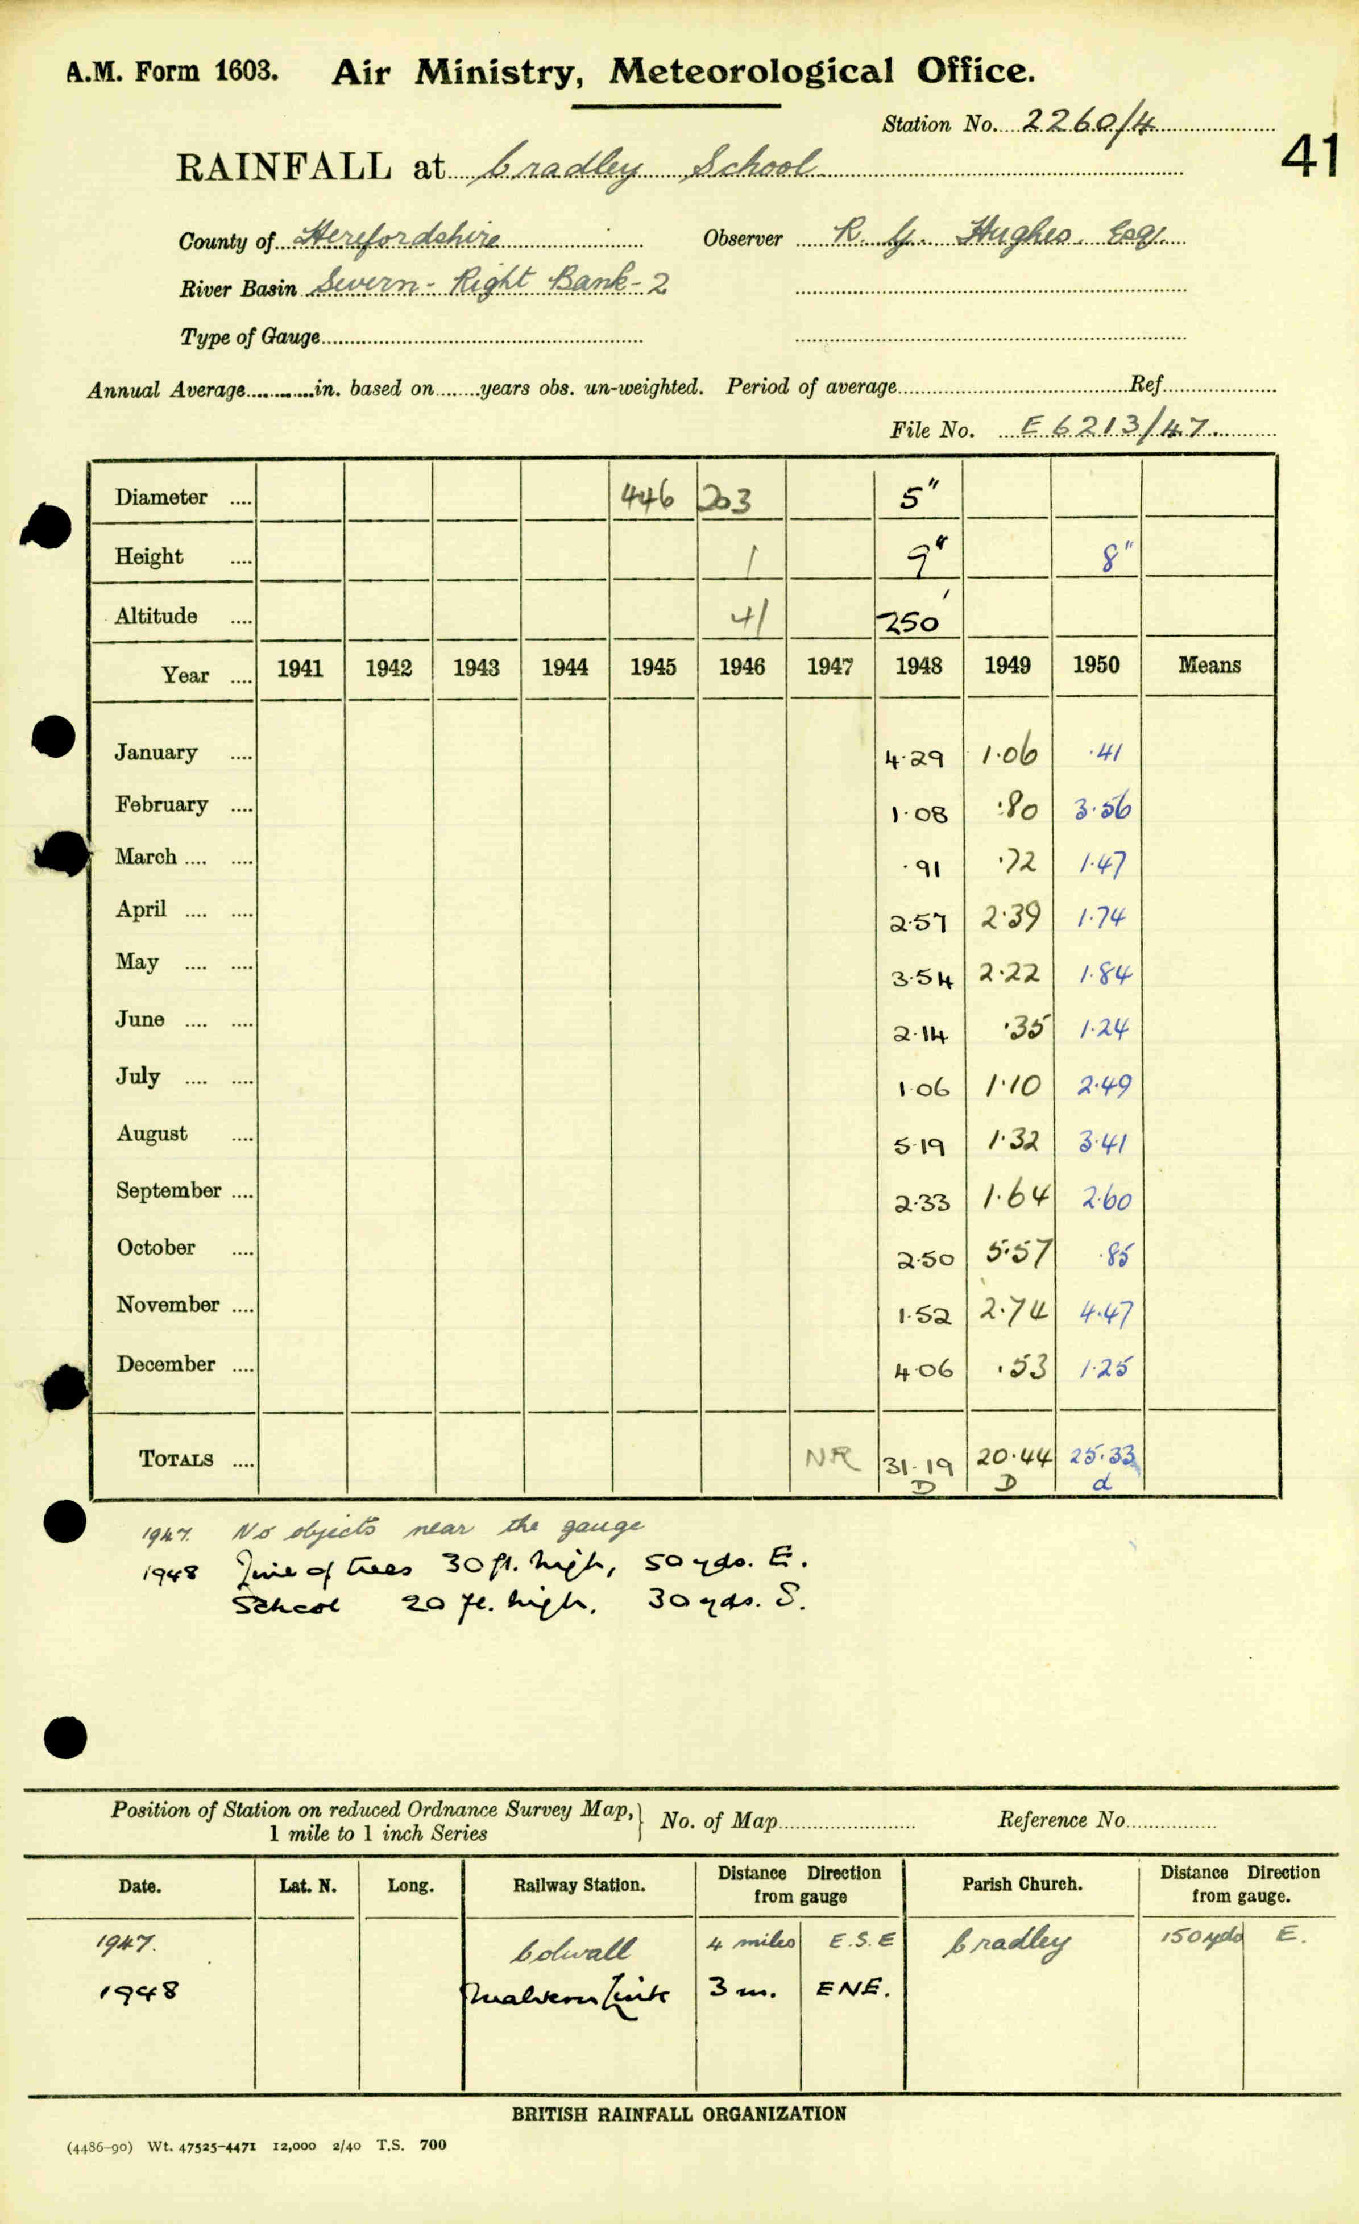 A.M. Form 1603. Air Ministry, Meteorological Office.
Station No. 2260/4
41
RAINFALL at Cradley School
County of Herefordshire Observer R. G. Hughes. Esq.
River Basin Severn - Right Bank - 2
Type of Gauge
Annual Average in. based on years obs. un-weighted. Period of average Ref.
File No. E 6213/47.
Diameter 446 203 5"
Height 1 9" 8"
Altitude 41 250'
Year 1941 1942 1943 1944 1945 1946 1947 1948 1949 1950 Means
January 4.29 1.06 .41
February 1.08 .80 3.56
March .91 .72 1.47
April 2.57 2.39 1.74
May 3.54 2.22 1.84
June 2.14 .35 1.24
July 1.06 1.10 2.49
August 5.19 1.32 3.41
September 2.33 1.64 2.60
October 2.50 5.57 .85
November 1.52 2.74 4.47
December 4.06 .53 1.25
TOTALS NR 31.19 20.44 25.33
D D d
1947. No objects near the gauge
1948 Line of trees 30 ft. high, 50 yds. E.
School 20 ft. high, 30 yds. S.
Position of Station on reduced Ordnance Survey Map, } No. of Map Reference No.
1 mile to 1 inch Series
Date. Lat. N. Long. Railway Station. Distance Direction from gauge Parish Church. Distance Direction from gauge.
1947. Colwall 4 miles E.S.E Cradley 150 yds E.
1948 Malvern Link 3 m. ENE.
BRITISH RAINFALL ORGANIZATION
(4486-90) Wt. 47525-4471 12,000 2/40 T.S. 700